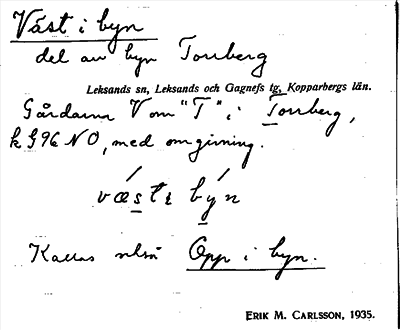 Väst i byn
del av byn Torrberg
Leksands sn, Leksands och Gagnefs tg, Kopparbergs län.
Gårdarna V om "T" i Torrberg,
k G96 NO, med omgivning.
väste býn
Kallas också Opp i byn.
ERIK M. CARLSSON, 1935.